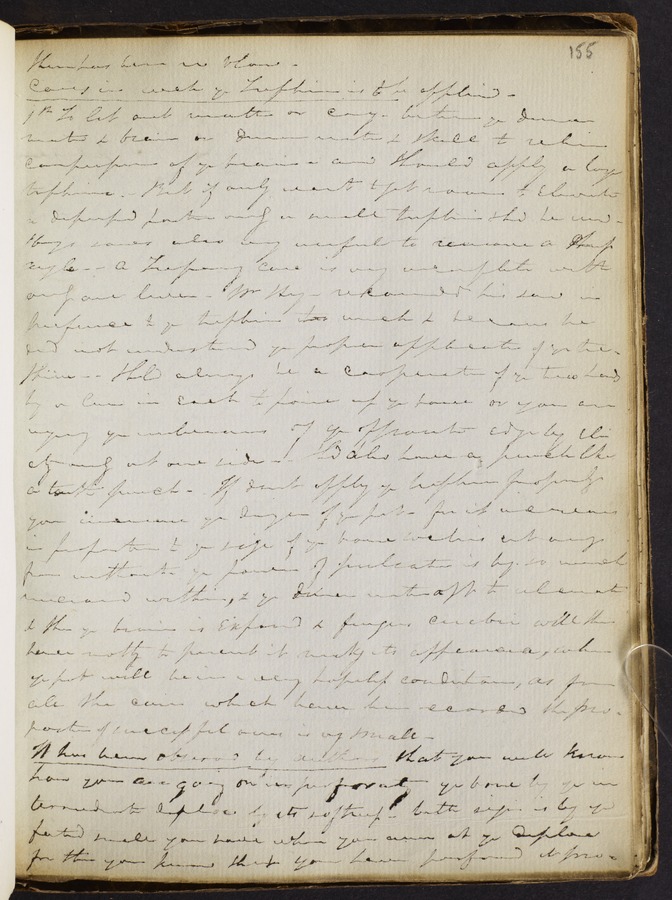 155
there has been no blow -
Cases in which ye Trephine is to be applied -
1st To let out matter or coag. betwn ye dura
mater & brain or Dura mater & Skull & relieve
compression of ye brain - and should apply a large
trephine - But if only want to get room to Elevate
a depressed portion only a small trephine shd be used -
Heys saws also very useful to remove a sharp
angle - A Trepanning case is very incomplete with
only one lever - Mr Hey recommended his saw in
preference to ye trephine too much & because he
did not understand ye proper application of ye tre-
phine - Shld always be a cooperation of ye two hands
by a lever in each to poise up ye bone or you are
of ye opposite edge by
only at one side - Shd also have a punch like
a tooth punch - If dont apply ye trephine properly
you increase ye danger of ye pat - for it increases
in proportion to ye size of ye bone which is cut away
from without ye power of pulsation is by so much
increased within, & ye dura mater apt to ulcerate
& then ye brain is Exposed & fungus cerebri will then
have nothg to prevent it makg its appearance, when
ye pat will be in a very hopeless condition, as from
all the cases which have been recorded the pro-
portion of successful ones is vy small -
It has been observed by authors that you will know
how you are going on in perforatg ye bone by ye in
termediate diploe by its softness - bettr sign is by ye
fetid smell you have when you arrive at ye diploe
for then you know that you have perforated it pro-